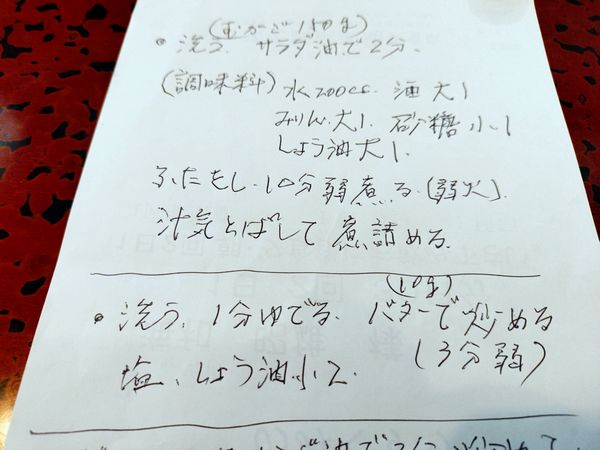 (むかご150g)
・洗う、サラダ油で2分、
(調味料) 水200cc. 酒大1
みりん.大1. 砂糖小1
しょう油大1.
ふたをし.10分弱煮る.(弱火).
汁気とばして煮詰める.
(10g)
・洗う、1分ゆでる、バターで炒める
塩、しょう油小2.
(3分弱)